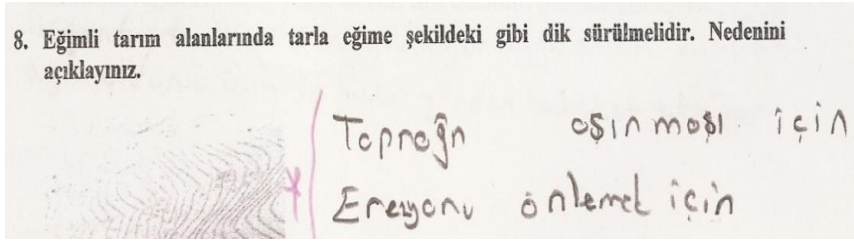 8. Eğimli tarım alanlarında tarla eğime şekildeki gibi dik sürülmelidir. Nedenini
açıklayınız.
Toprağn aşınması için
Erezyonu önlemek için